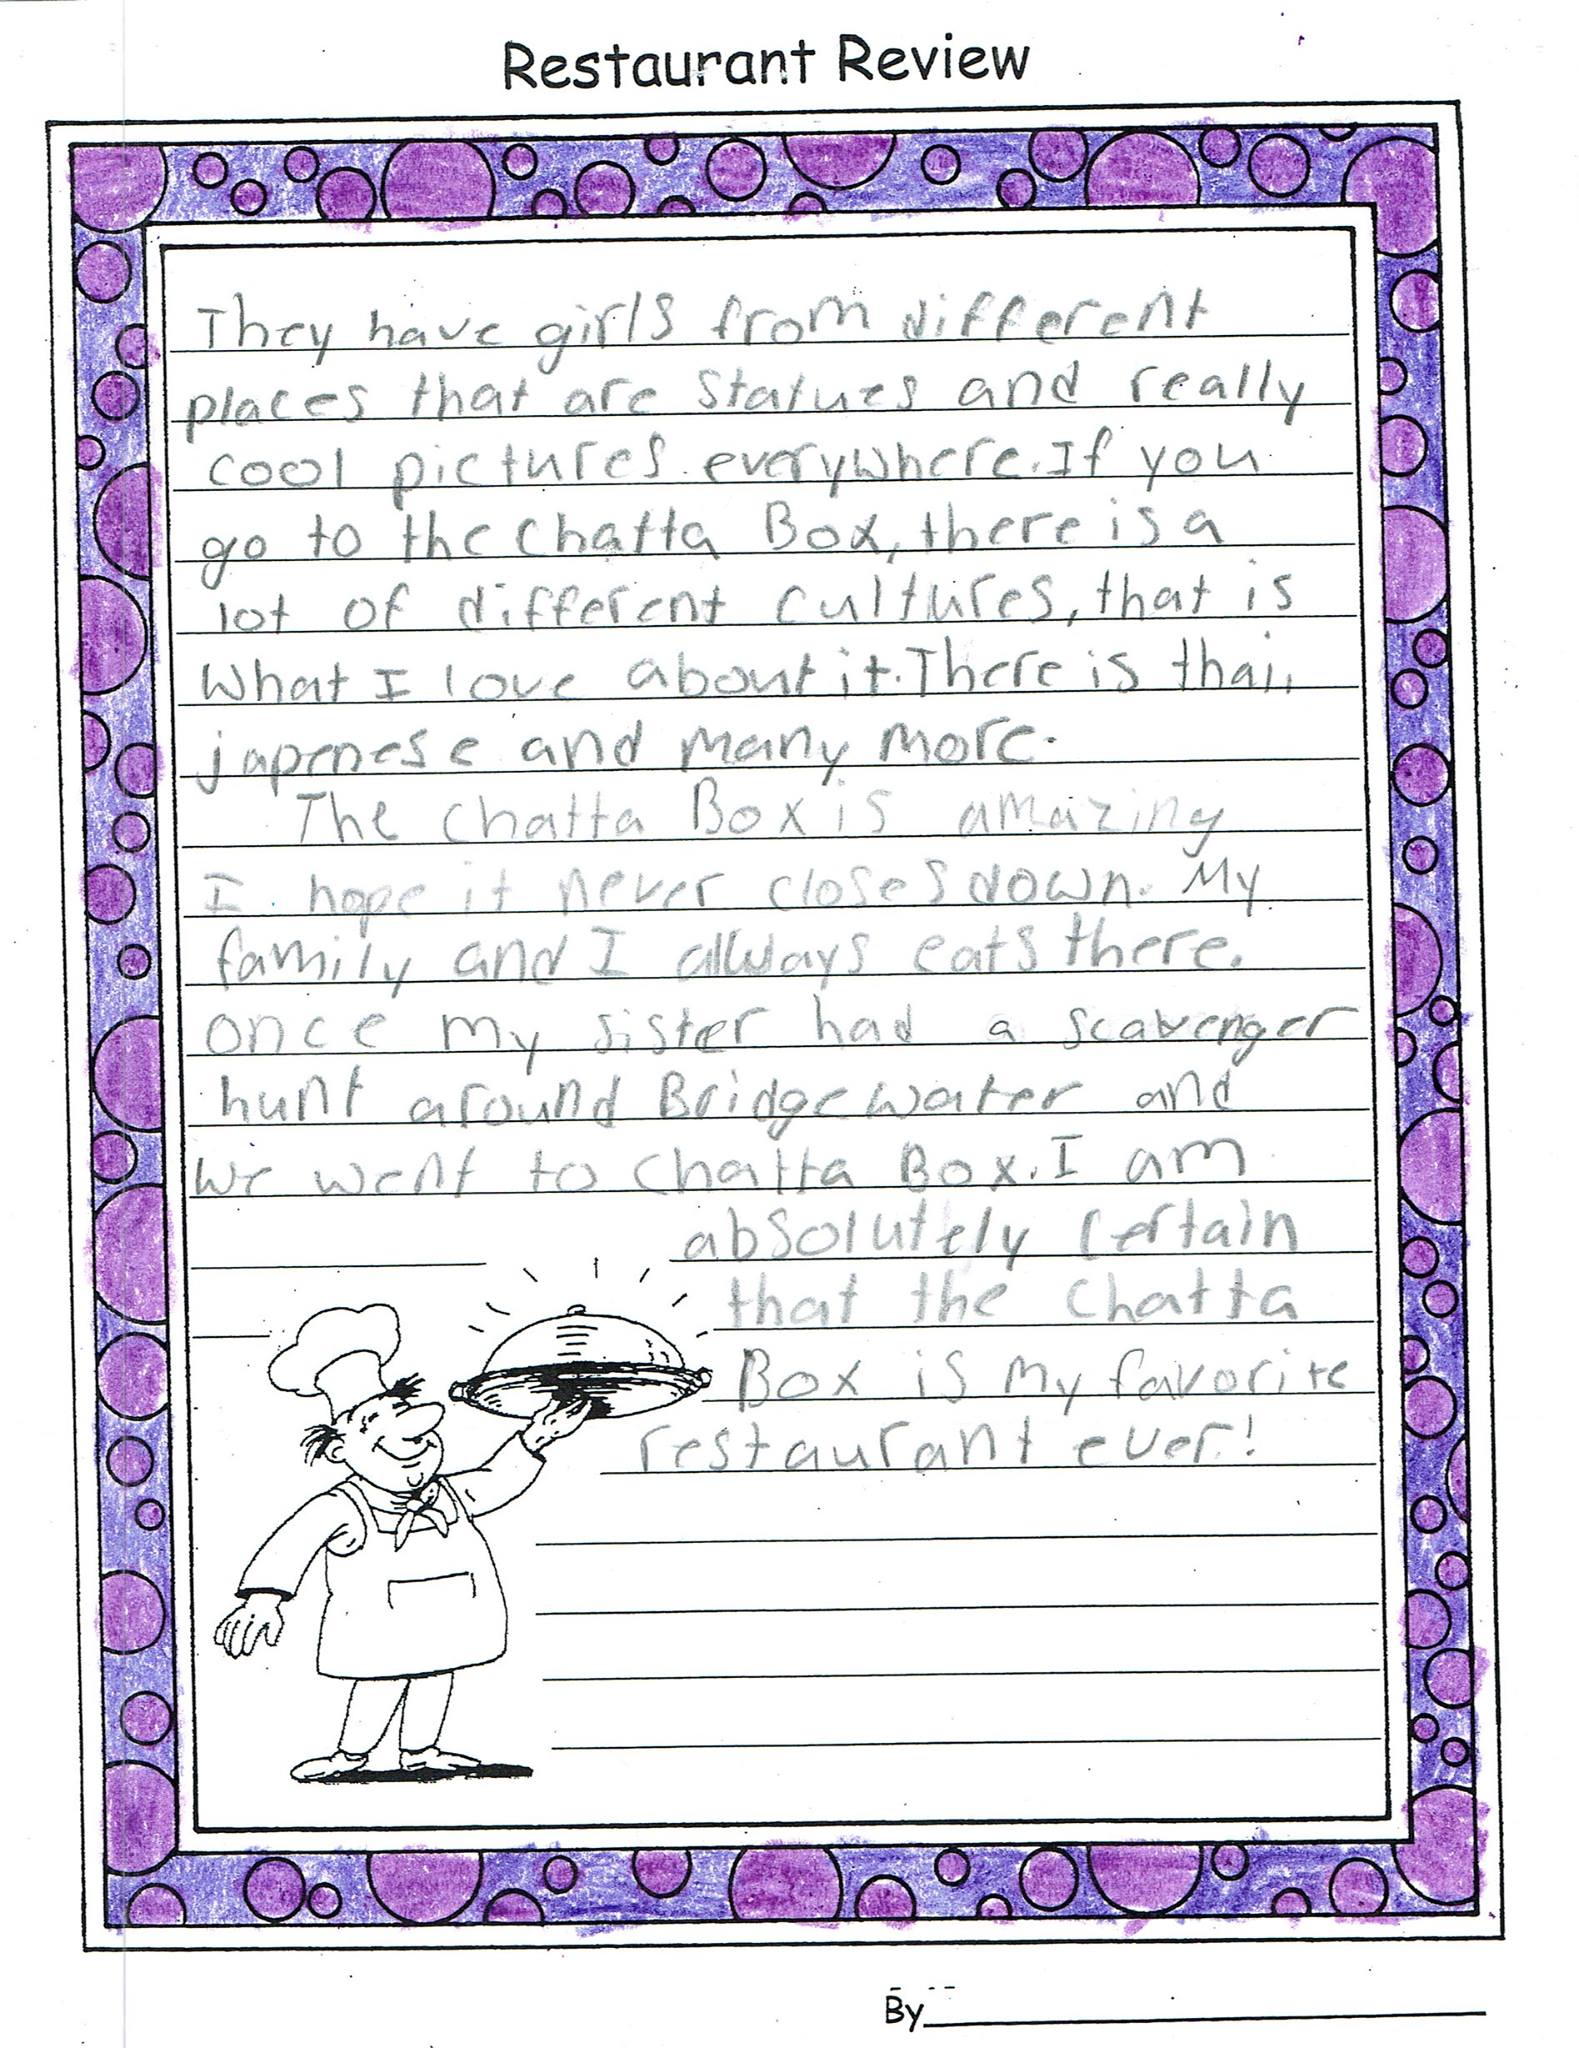 Restaurant Review
They have girls from different
places that are statues and really
cool pictures everywhere. If you
go to the Chatta Box, there is a
lot of different cultures, that is
what I love about it. There is thai,
japenese and many more.
The Chatta Box is amazing
I hope it never closes down. My
family and I always eats there.
once my sister had a scavenger
hunt around Bridgewater and
we went to Chatta Box. I am
absolutely certain
that the Chatta
Box is my favorite
restaurant ever!
By